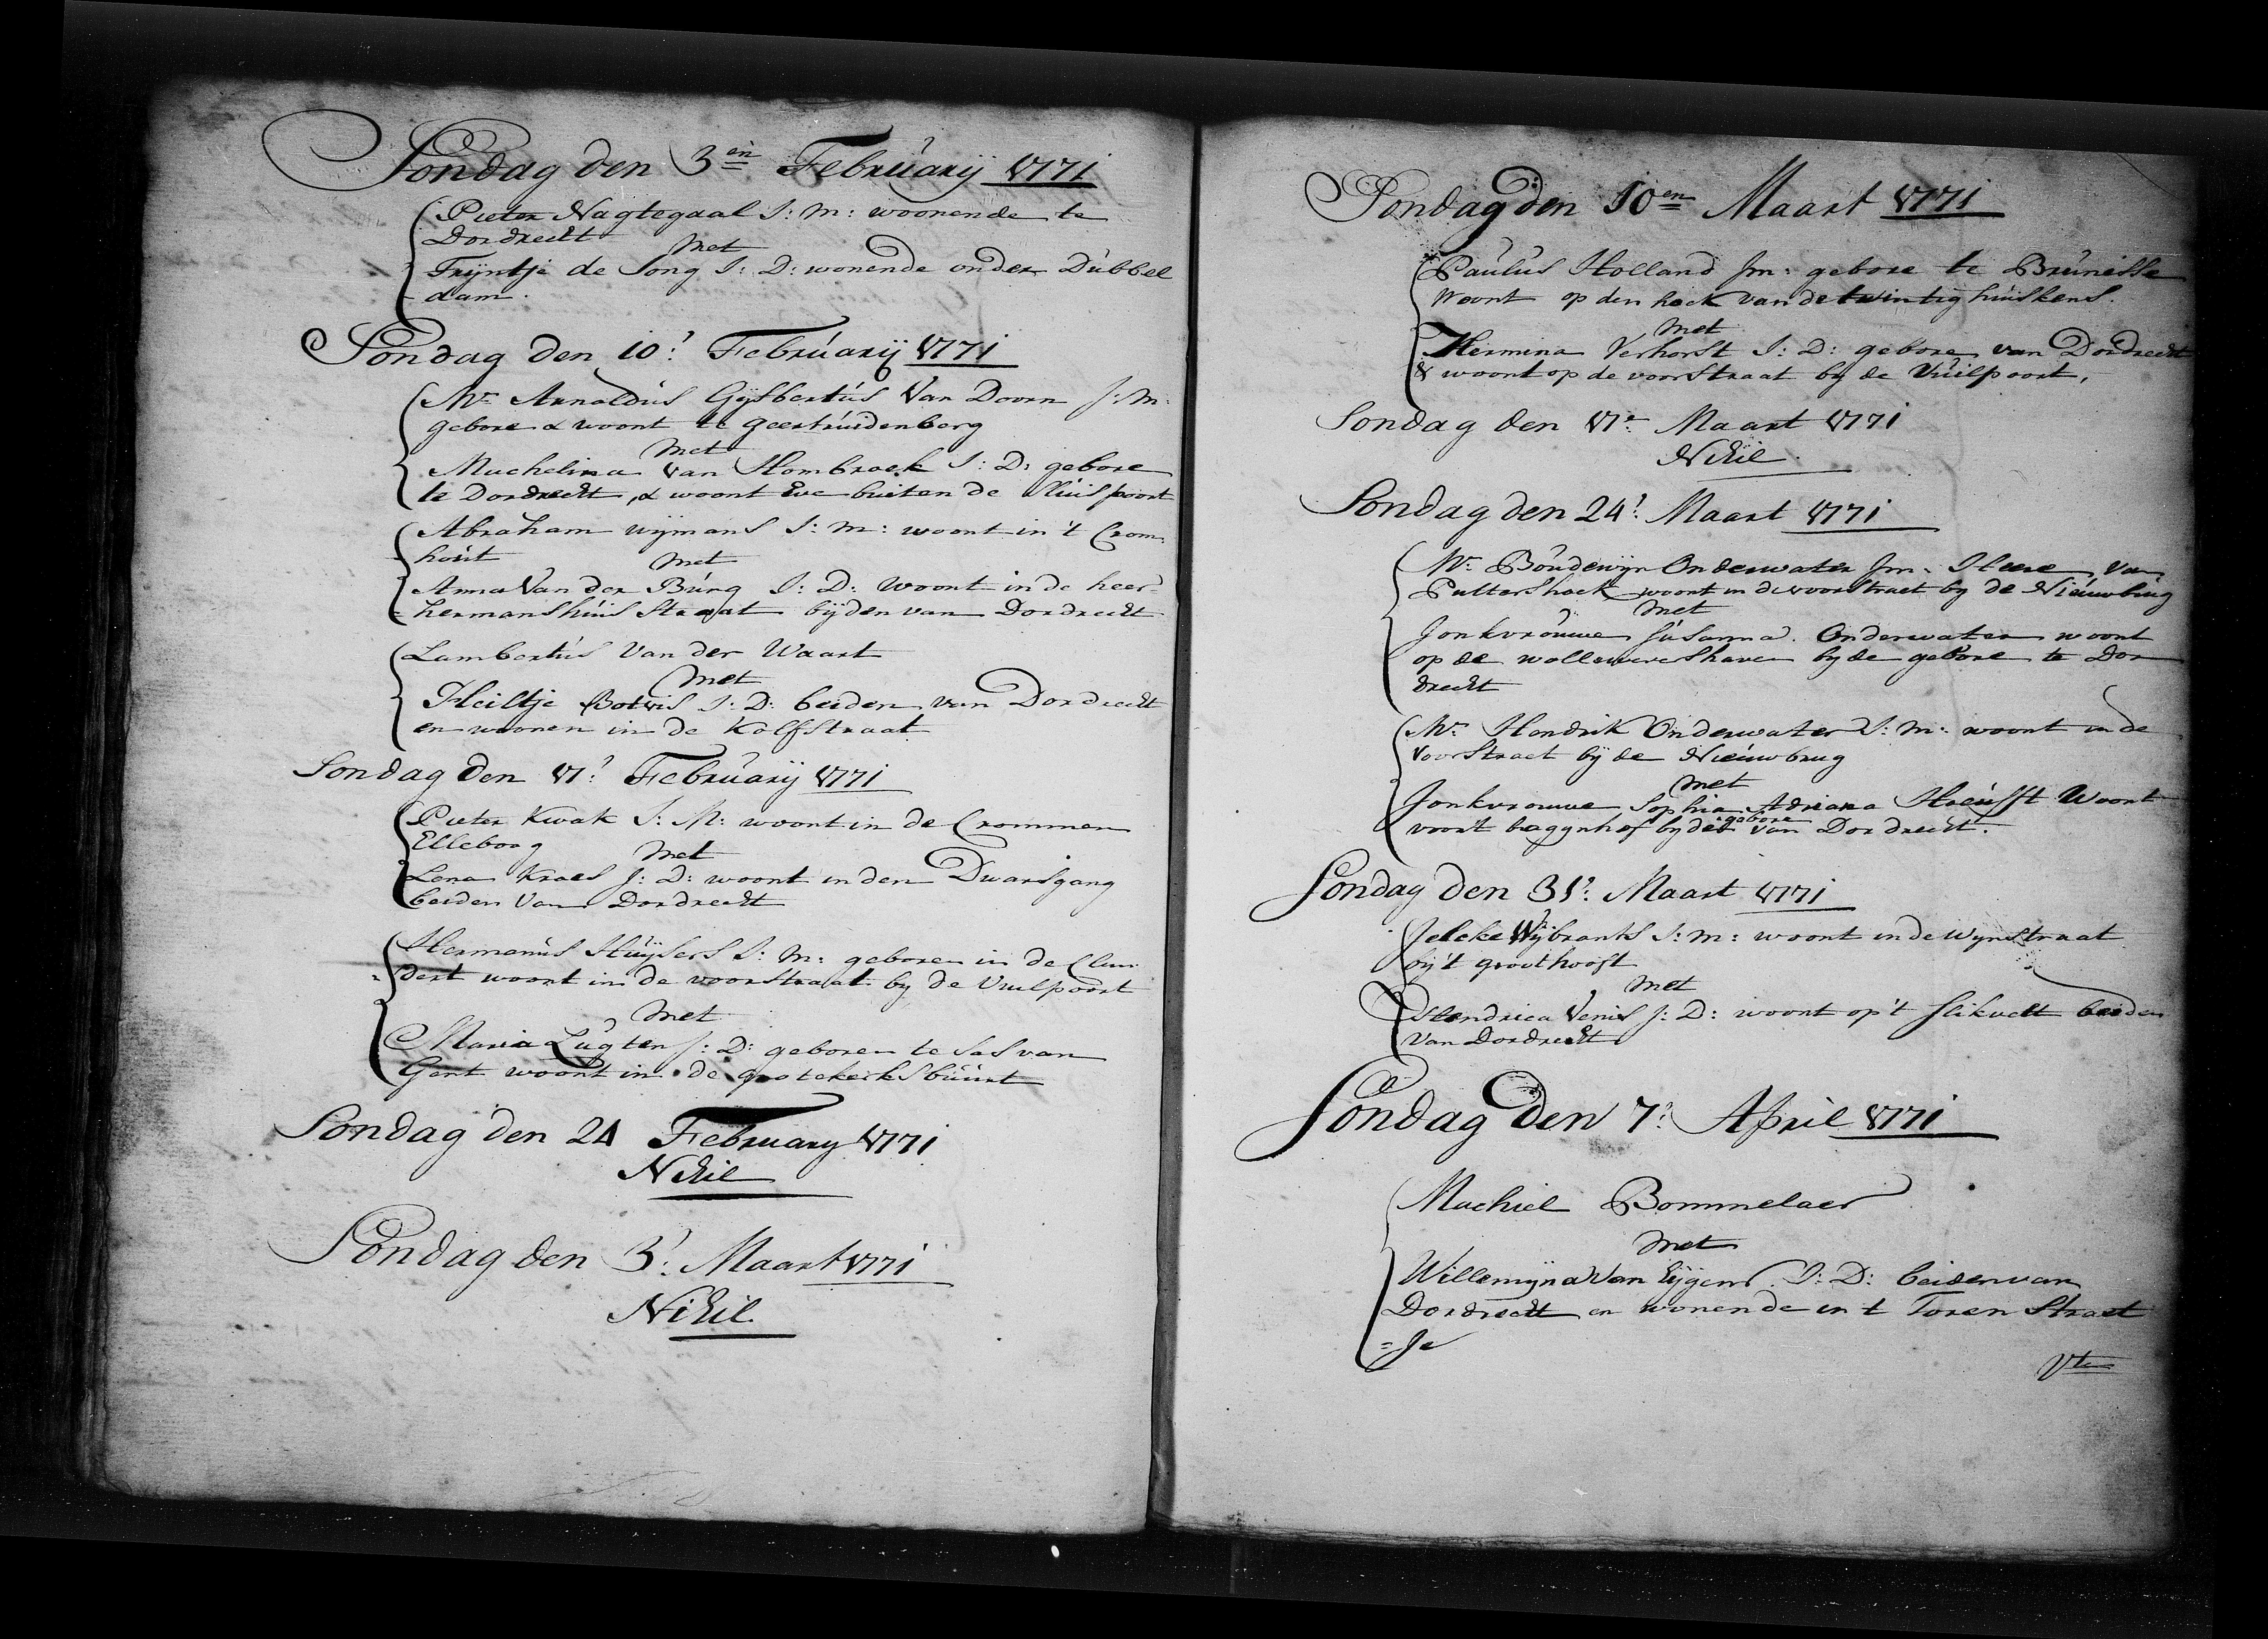 Sondag den 3en Februarij 1771
Pieter Nagtegaal J: m: woonende te
Dordrecht
Met
Trijntje de Jong J: D: wonende onder Dubbel
dam.
Sondag den 10: Februarij 1771
Mr Arnoldus Gijsbertus Van Doorn J: m:
gebore & woont te geertruidenberg
Met
Machelina van Hombroek J: D: gebore
te Dordrecht, & woont buiten de Sluispoort
Abraham wijmans J: m: woont in 't Crom
hout
Met
Anna Van der Burg J: D: woont in de heer
hermanshuis Straat bijden van Dordrecht
Lambertus Van der Waart
Met
Heiltje Botvis J: D: beiden van Dordrecht
en woonen in de Kolfstraat
Sondag den 17: Februarij 1771
Pieter Kwak J: M: woont in de Crommen
Elleboog
Met
Lena Kraes J: D: woont in den Dwarsgang
beiden Van Dordrecht
Hermanus Huijsers J: m: geboren in de Clun
=dert woont in de voorstraat by de Vuilpoort
Met
Maria Lugten J: D: geboren te Sas van
Gent woont in de grotekerksbuurt
Sondag den 24 February 1771
Nihil
Sondag den 3: Maart 1771
Nihil.
Sondag den 10en Maart 1771
Paulus Holland Jm: gebore te Bruinisse
Woont op den hoek van de twintig huiskens.
Met
Hermina Verhorst J: D: gebore van Dordrecht
& woont op de voorstraat by de Vuilpoort,
Sondag den 17e Maart 1771
Nihil.
Sondag den 24: Maart 1771
Mr Boudewijn Onderwater Jm: Heere van
Puttershoek woont in de voorstraet by de Nieuwbrug
Met
Jonkvrouwe Susanna Onderwater woont
op de wollewevershaven byde gebore te Dor
drecht
Mr Hendrik Onderwater J: m: woont in de
Voorstraet bij de Nieuwbrug
Met
Jonkvrouwe Sophia Adriana Hoeufft Woont
voor't bagynhof byde gebore van Dordrecht.
Sondag den 31: Maart 1771
Jelcke Wijbrants J: m: woont in de Wynstraat
bij't groothooft
Met
Hendrica Venis J: D: woont op't Slikvelt beiden
Van Dordrecht
Sondag den 7: April 1771
Machiel Bommelaer
Met
Willemyna Van Eijgens J: D: beiden van
Dordrecht en wonende in t Toren Straet
=Je